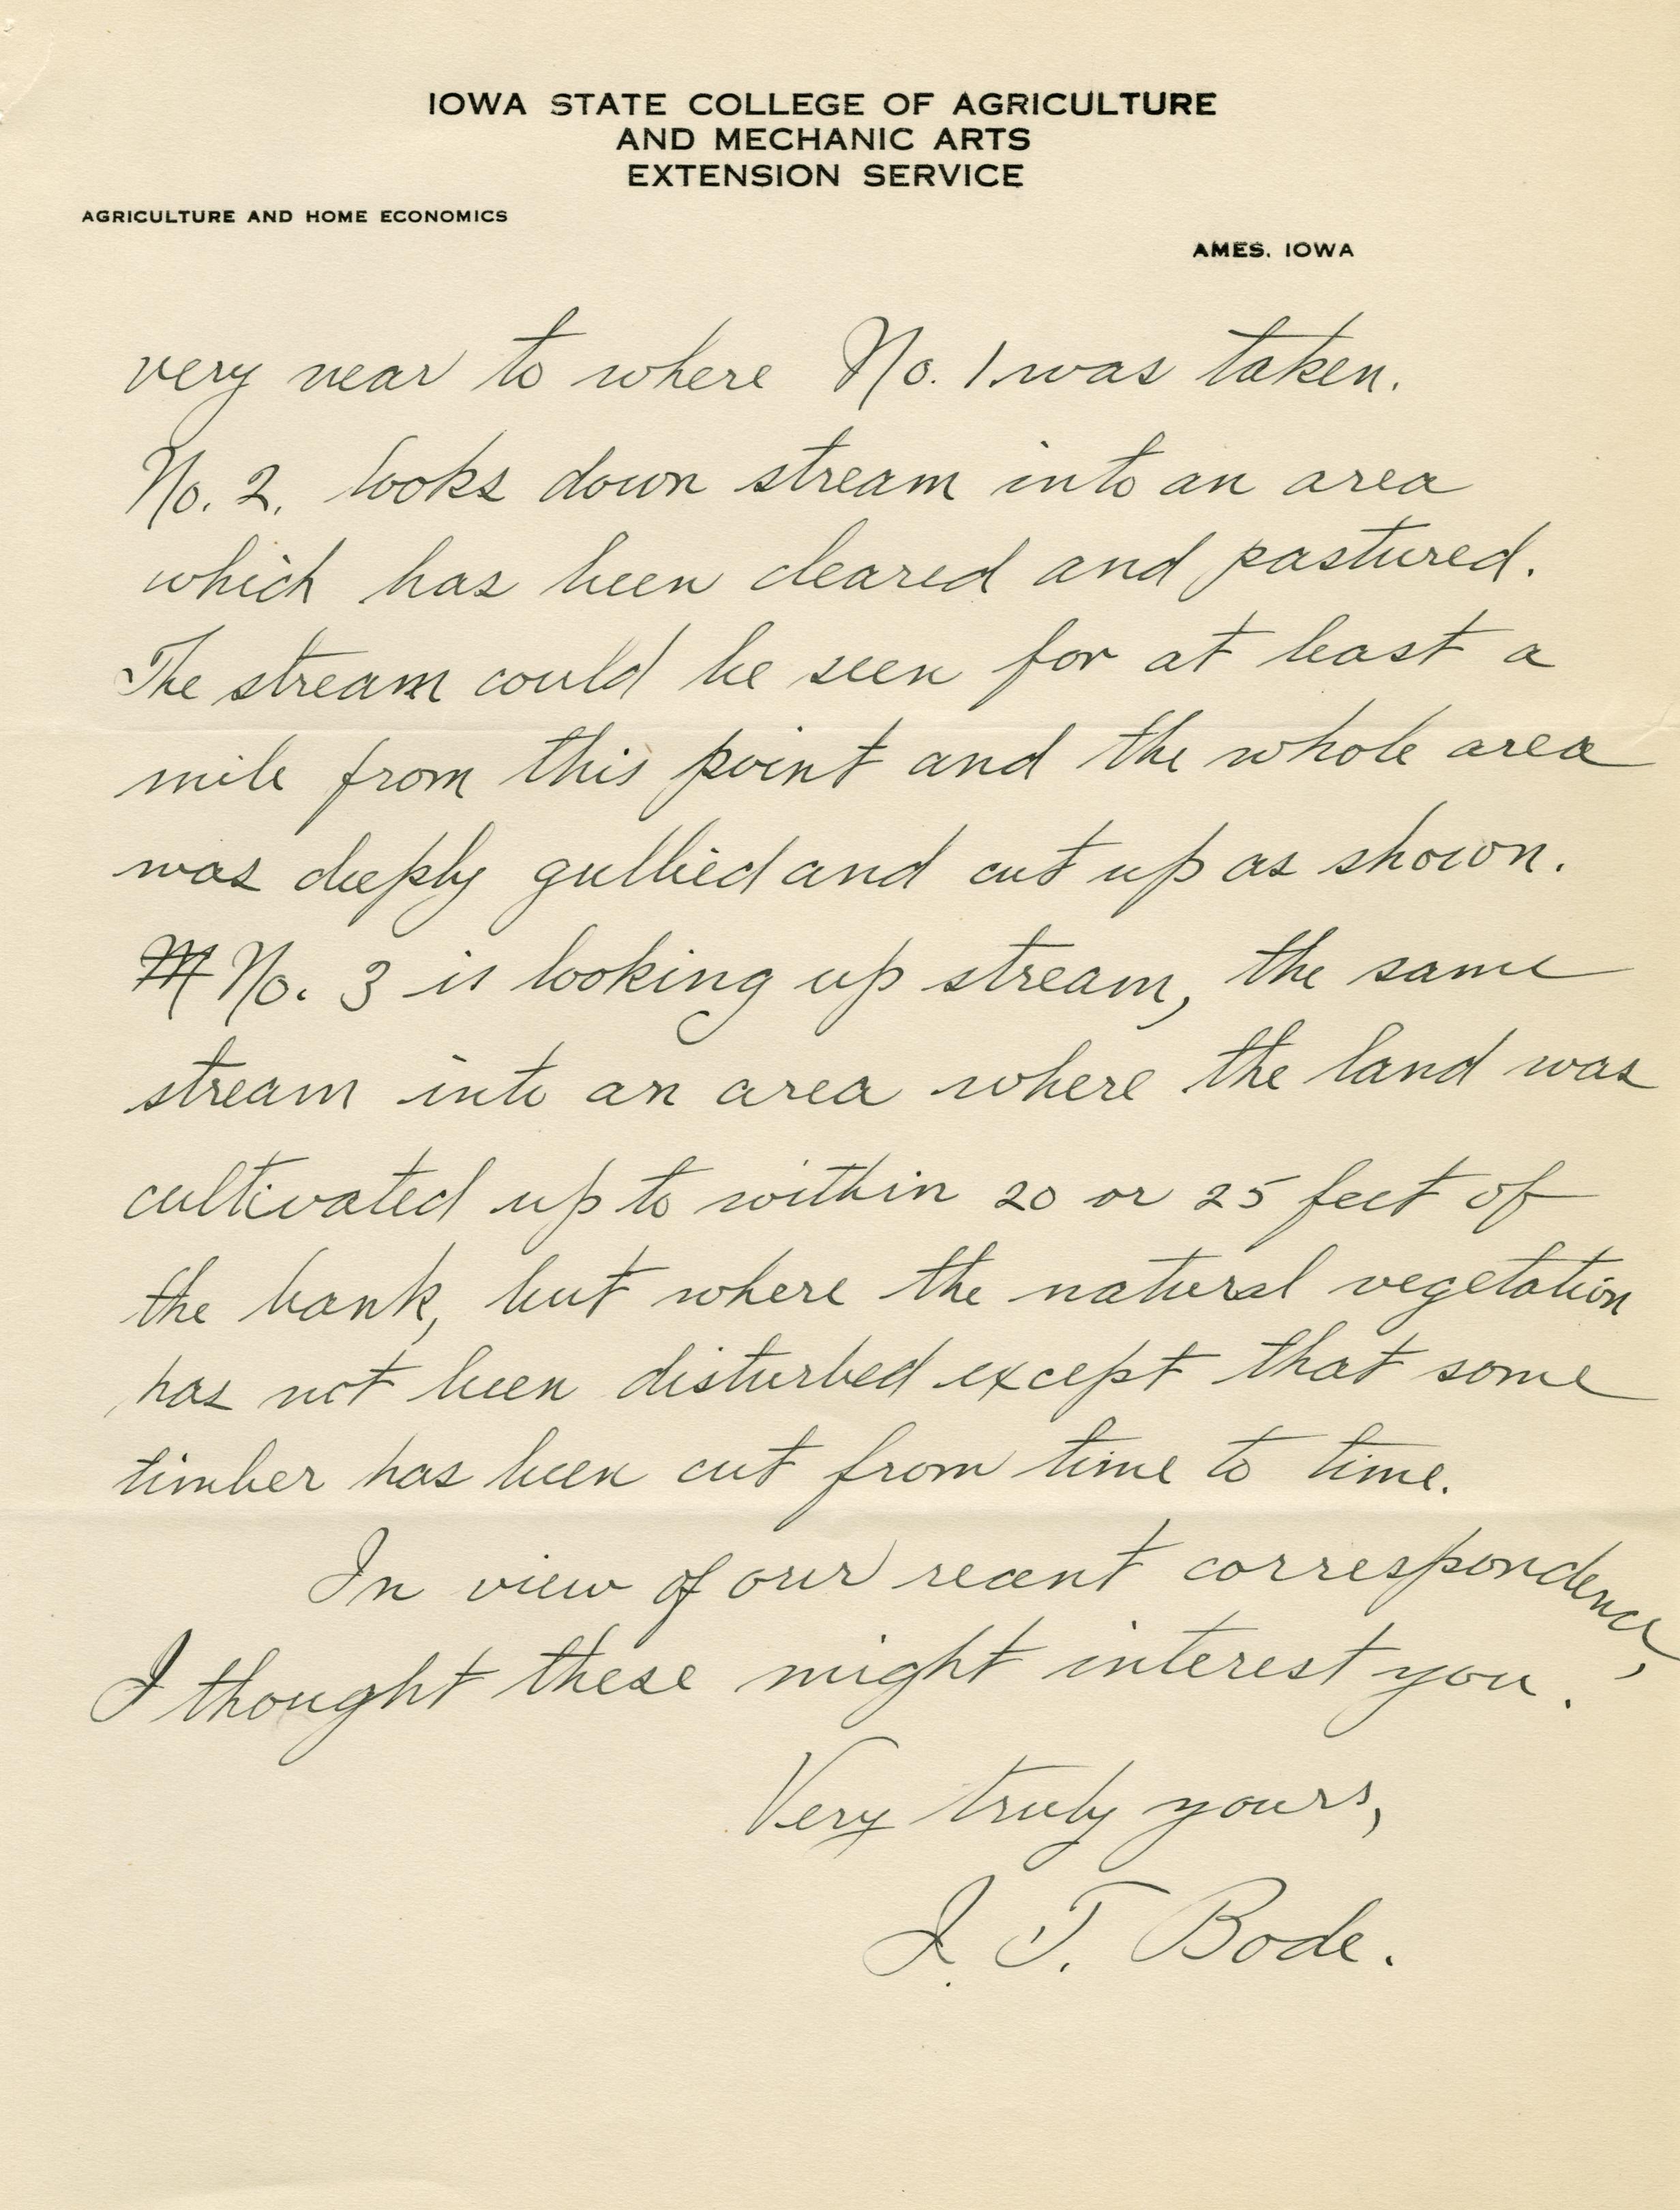 IOWA STATE COLLEGE OF AGRICULTURE
AND MECHANIC ARTS
EXTENSION SERVICE
AGRICULTURE AND HOME ECONOMICS
AMES, IOWA
very near to where No. 1 was taken.
No. 2. looks down stream into an area
which has been cleared and pastured.
The stream could be seen for at least a
mile from this point and the whole area
was deeply gullied and cut up as shown.
M No. 3 is looking up stream, the same
stream into an area where the land was
cultivated up to within 20 or 25 feet of
the bank, but where the natural vegetation
has not been disturbed except that some
timber has been cut from time to time.
In view of our recent correspondence,
I thought these might interest you.
Very truly yours,
I. T. Bode.